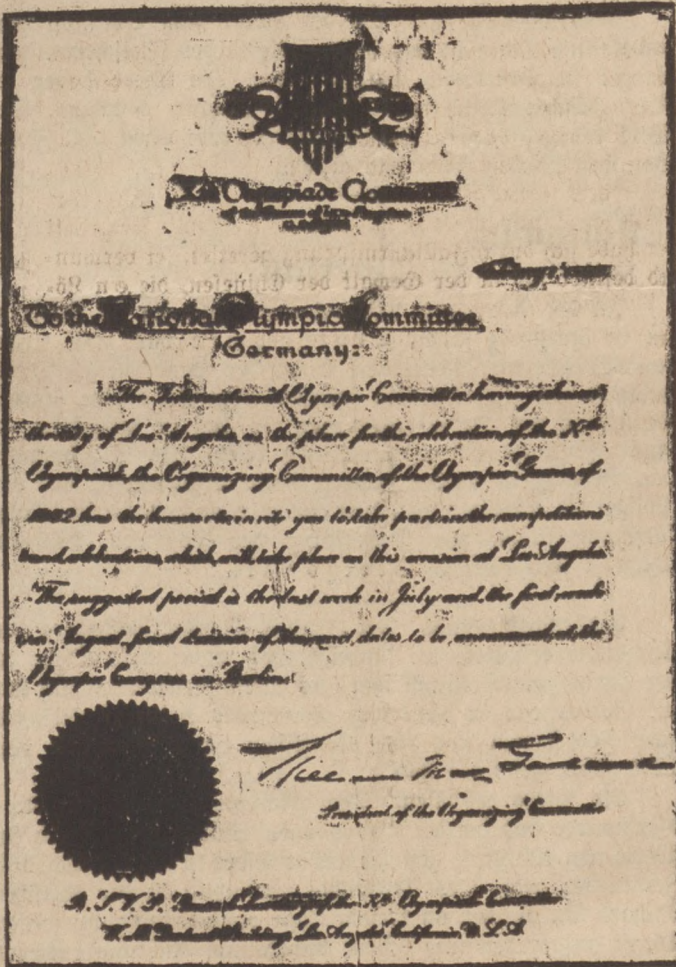 Xth Olympiade Committee
of the Games of Los Angeles
To the National Olympic Committee
Germany:
The International Olympic Committee having chosen
the City of Los Angeles as the place for the celebration of the Xth
Olympiad, the Organizing Committee of the Olympic Games of
1932 has the honor to invite you to take part in the competitions
and celebrations, which will take place on this occasion at Los Angeles
The suggested period is the last week in July and the first week
in August, final decision of the exact dates to be announced at the
Olympic Congress in Berlin.
William May Garland
President of the Organizing Committee
R.S.V.P. General Secretary of the Xth Olympiade Committee
W. M. Garland Building, Los Angeles, California, U.S.A.